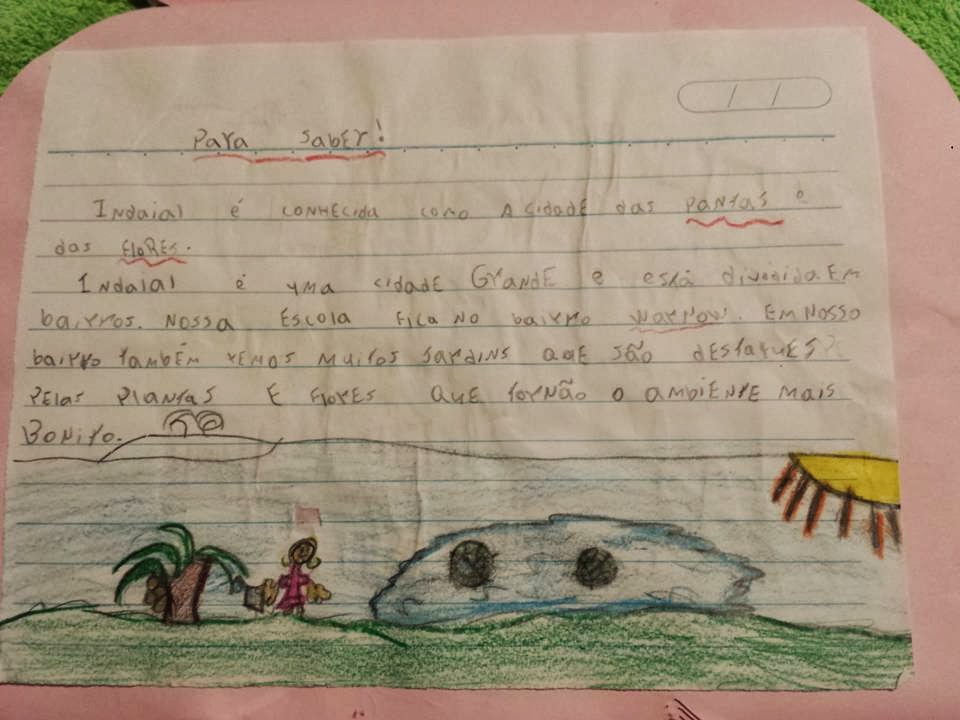 Para saber!
Indaial é conhecida como a cidade das pantas e
das flores.
Indaial é uma cidade Grande e está dividida em
bairros. Nossa Escola fica no bairro warnow. Em nosso
bairro também temos muitos Jardins que são destaques
pelas plantas e flores que tornão o ambiente mais
Bonito.